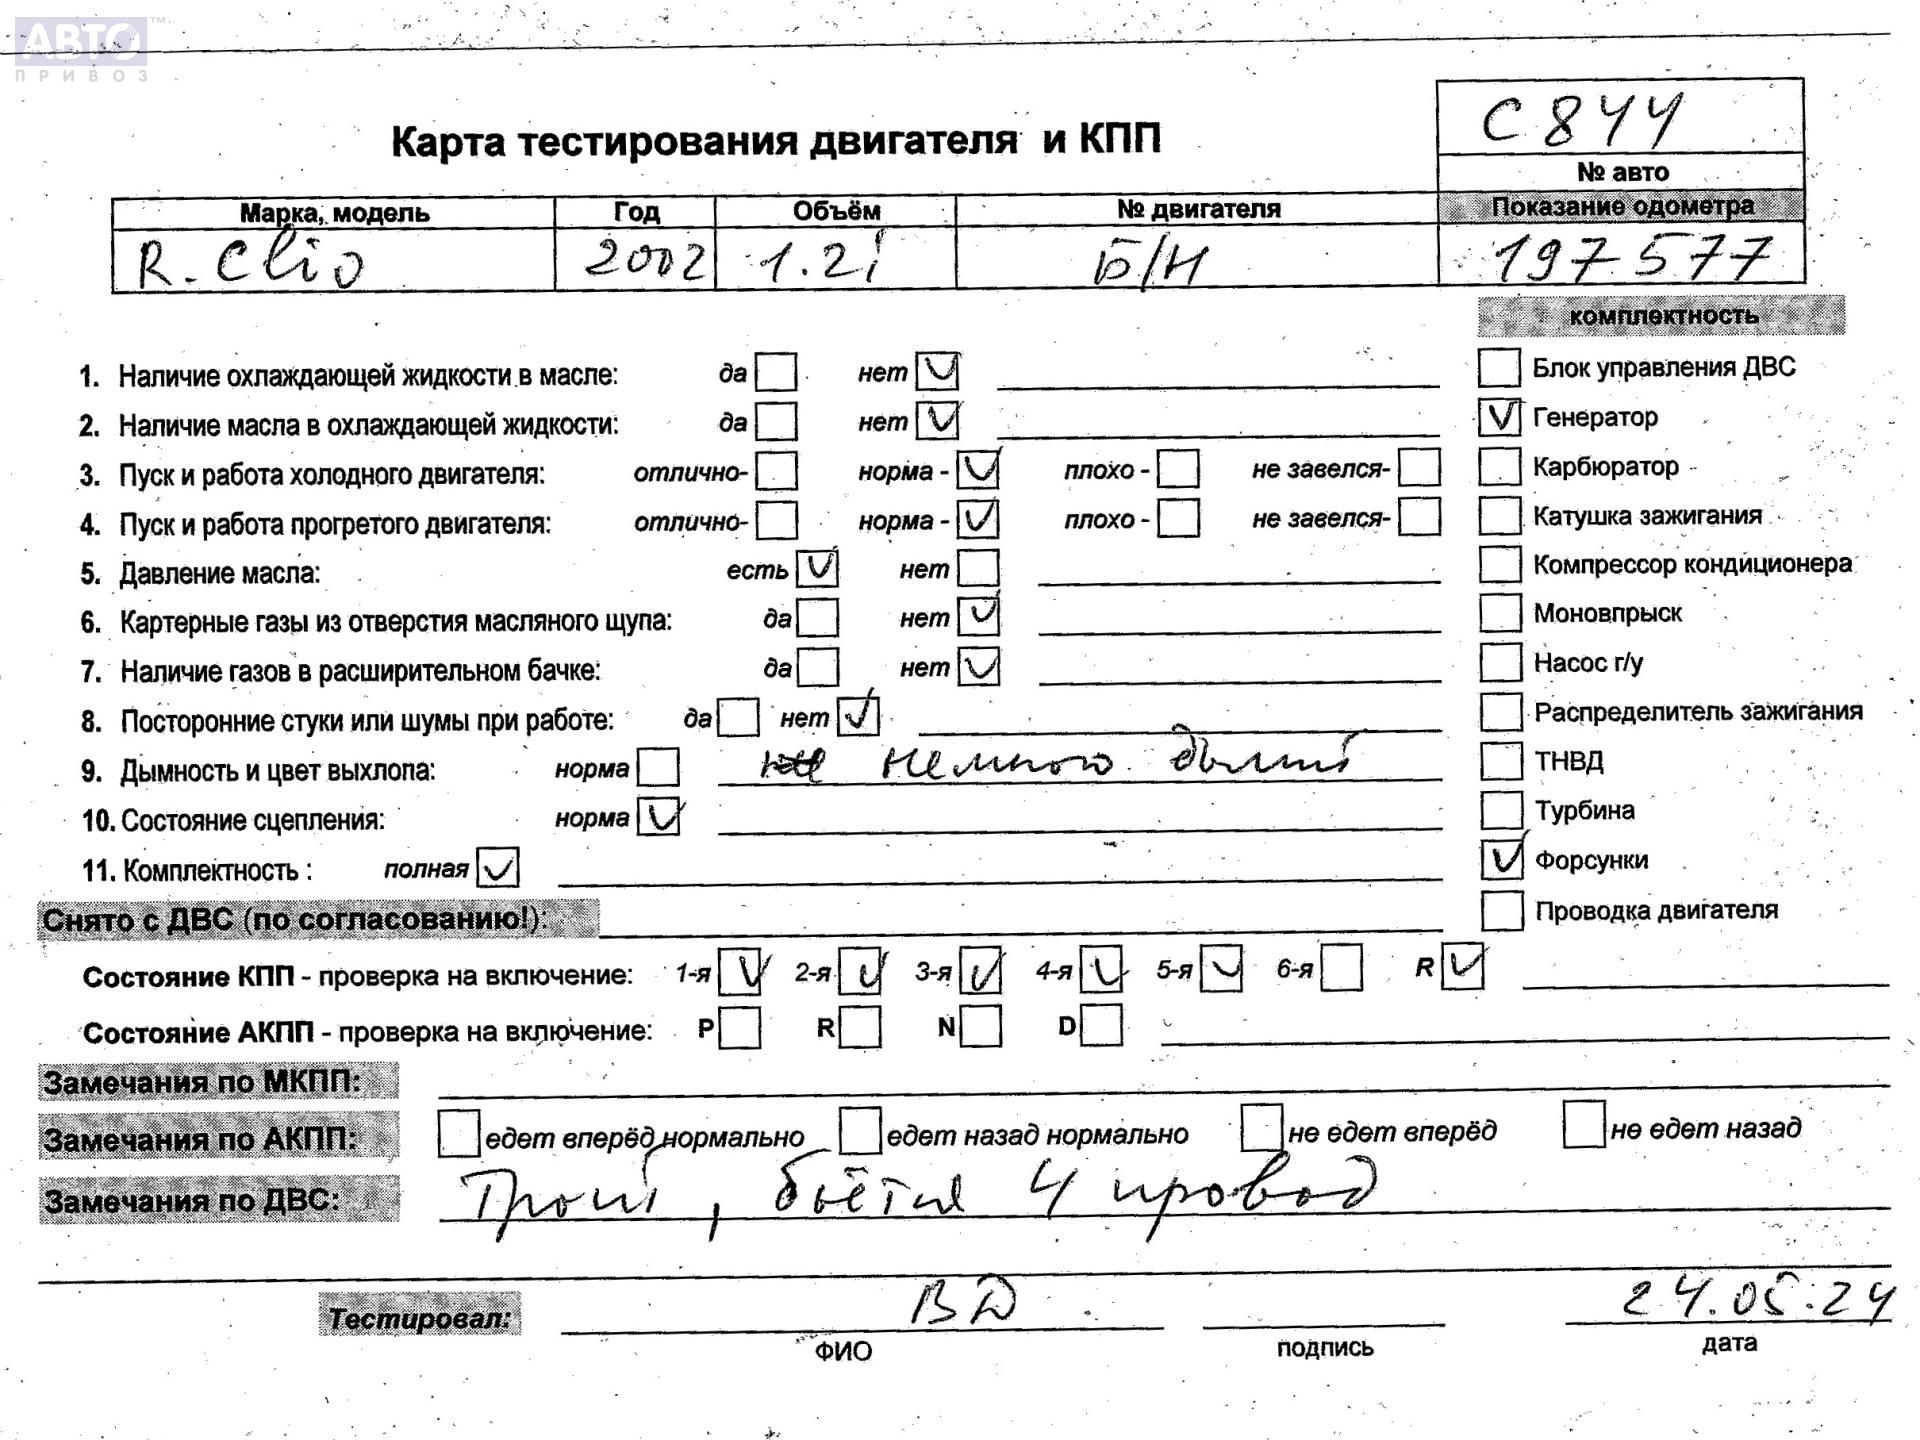 АВТО™
ПРИВОЗ
С 844
Карта тестирования двигателя и КПП
№ авто
Марка, модель Год Объём № двигателя Показание одометра
R. Clio 2002 1.2i Б/Н 197577
комплектность
1. Наличие охлаждающей жидкости в масле: да нет V
Блок управления ДВС
2. Наличие масла в охлаждающей жидкости: да нет V
V Генератор
3. Пуск и работа холодного двигателя: отлично- норма - V плохо - не завелся-
Карбюратор
4. Пуск и работа прогретого двигателя: отлично- норма - V плохо - не завелся-
Катушка зажигания
5. Давление масла: есть V нет
Компрессор кондиционера
6. Картерные газы из отверстия масляного щупа: да нет V
Моновпрыск
7. Наличие газов в расширительном бачке: да нет V
Насос г/у
8. Посторонние стуки или шумы при работе: да нет V
Распределитель зажигания
9. Дымность и цвет выхлопа: норма немного дымит
ТНВД
10. Состояние сцепления: норма V
Турбина
11. Комплектность : полная V
V Форсунки
Снято с ДВС (по согласованию!):
Проводка двигателя
Состояние КПП - проверка на включение: 1-я V 2-я V 3-я V 4-я V 5-я V 6-я R V
Состояние АКПП - проверка на включение: P R N D
Замечания по МКПП:
Замечания по АКПП: едет вперёд нормально едет назад нормально не едет вперёд не едет назад
Замечания по ДВС: Троит, бьётся 4 провод
Тестировал: ВД 24.05.24
ФИО подпись дата